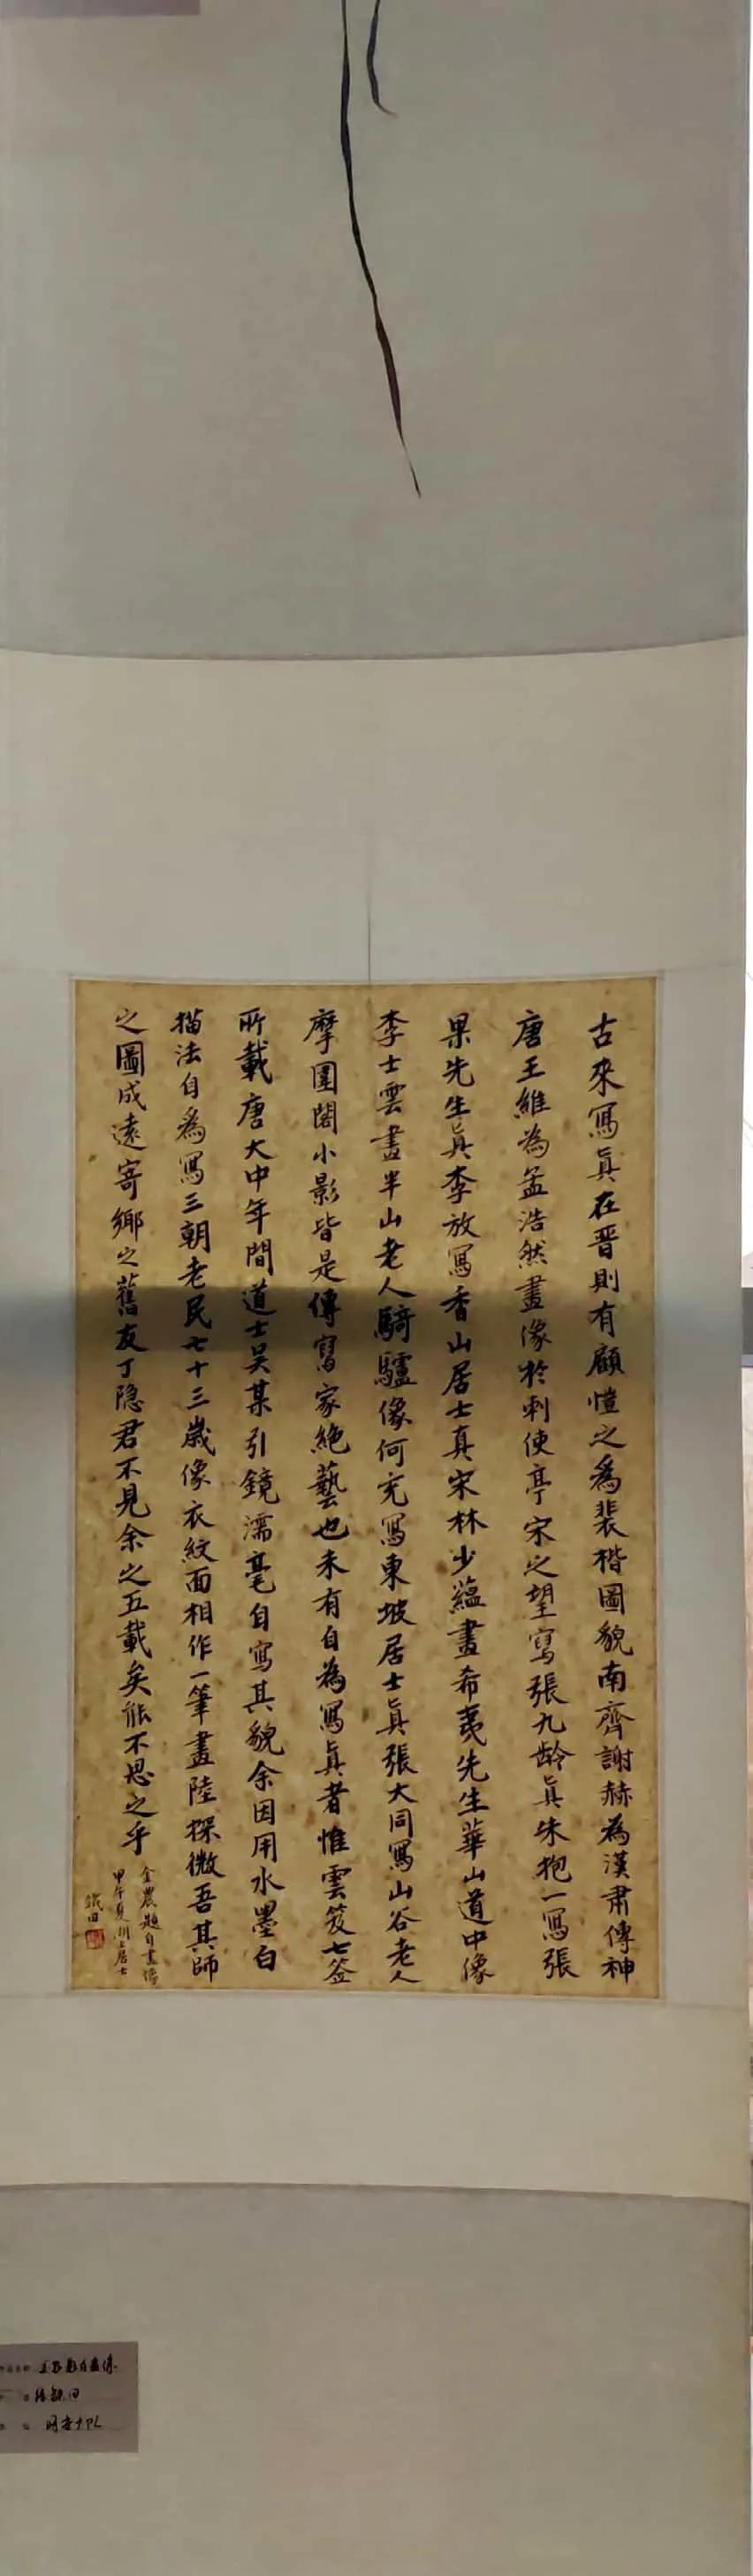 古來寫真在晋則有顧愷之為裴楷圖貌南齊謝赫為漢肅傳神
唐王維為孟浩然畫像於刺使亭宋之望寫張九齡真朱抱一寫張
果先生真李放寫香山居士真宋林少蘊畫希夷先生華山道中像
李士雲畫半山老人騎驢像何充寫東坡居士真張大同寫山谷老人
摩圍閣小影皆是傳寫家絕藝也未有自為寫真者惟雲笈七签
所載唐大中年間道士吴某引鏡濡毫自寫其貌余因用水墨白
描法自為寫三朝老民七十三歲像衣紋面相作一筆畫陸探微吾其師
之圖成遠寄鄉之舊友丁隐君不見余之五載矣能不思之乎
金農題自畫像
甲午夏 居士
鐵田